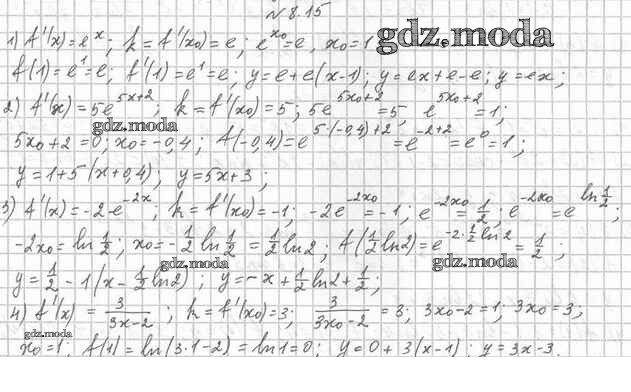 № 8.15
1) f'(x)=e^x; k=f'(x₀)=e; e^{x₀}=e, x₀=1 gdz.moda
f(1)=e¹=e; f'(1)=e¹=e; y=e+e(x-1); y=ex+e-e; y=ex;
2) f'(x)=5e^{5x+2}; k=f'(x₀)=5; 5e^{5x₀+2}=5, e^{5x₀+2}=1;
gdz.moda
5x₀+2=0; x₀=-0,4; f(-0,4)=e^{5·(-0,4)+2}=e^{-2+2}=e⁰=1;
y=1+5(x+0,4); y=5x+3;
3) f'(x)=-2·e^{-2x}; k=f'(x₀)=-1; -2e^{-2x₀}=-1; e^{-2x₀}=1/2; e^{-2x₀}=e^{ln 1/2};
-2x₀=ln 1/2; x₀=-1/2 ln 1/2=1/2 ln2; f(1/2 ln2)=e^{-2·1/2 ln2}=1/2;
gdz.moda gdz.moda
y=1/2-1(x-1/2 ln2); y=-x+1/2 ln2+1/2;
4) f'(x)=3/(3x-2); k=f'(x₀)=3; 3/(3x₀-2)=3; 3x₀-2=1; 3x₀=3;
gdz.moda
x₀=1; f(1)=ln(3·1-2)=ln1=0; y=0+3(x-1); y=3x-3.